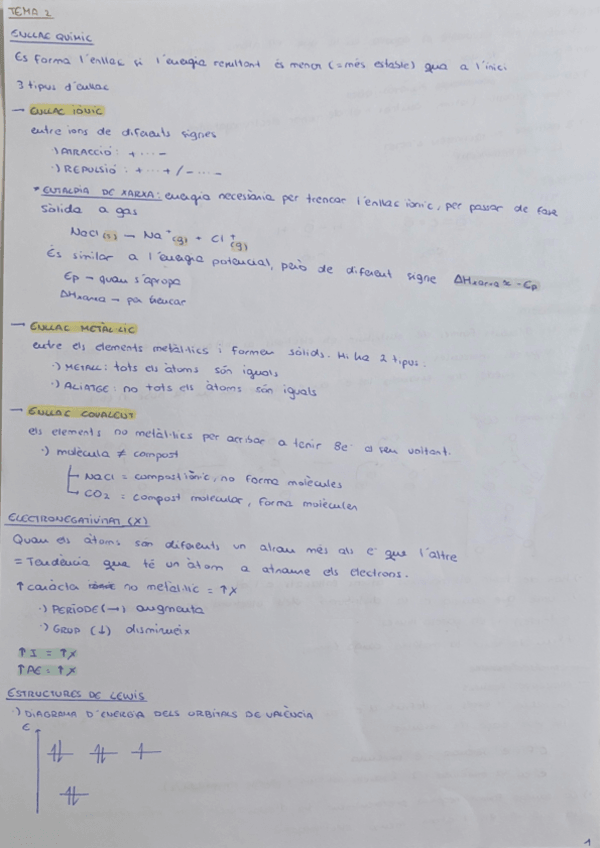 TEMA 2
ENLLAÇ QUÍMIC
Es forma l'enllaç si l'energia resultant és menor (= més estable) que a l'inici
3 tipus d'enllaç
→ ENLLAÇ IÒNIC
entre ions de diferents signes
·) ATRACCIÓ: + ··· -
·) REPULSIÓ: + ··· + / - ··· -
* ENTALPIA DE XARXA: energia necessària per trencar l'enllaç iònic, per passar de fase
sòlida a gas
NaCl (s) → Na⁺ (g) + Cl⁺ (g)
És similar a l'energia potencial, però de diferent signe ΔHxarxa ≈ - Ep
Ep → quan s'apropa
ΔHxarxa → per trencar
→ ENLLAÇ METÀL·LIC
entre els elements metàl·lics i formen sòlids. Hi ha 2 tipus.
·) METALL: tots els àtoms són iguals
·) ALIATGE: no tots els àtoms són iguals
→ ENLLAÇ COVALENT
els elements no metàl·lics per arribar a tenir 8e⁻ al seu voltant.
·) molècula ≠ compost
NaCl = compost iònic, no forma molècules
CO2 = compost molecular, forma molècules
ELECTRONEGATIVITAT (X)
Quan els àtoms són diferents un atrau més als e⁻ que l'altre
= Tendència que té un àtom a atraure els electrons.
↑ caràcter no metàl·lic = ↑X
·) PERÍODE (→) augmenta
·) GRUP (↓) disminueix
↑I = ↑X
↑AE = ↑X
ESTRUCTURES DE LEWIS
·) DIAGRAMA D'ENERGIA DELS ORBITALS DE VALÈNCIA
E
1